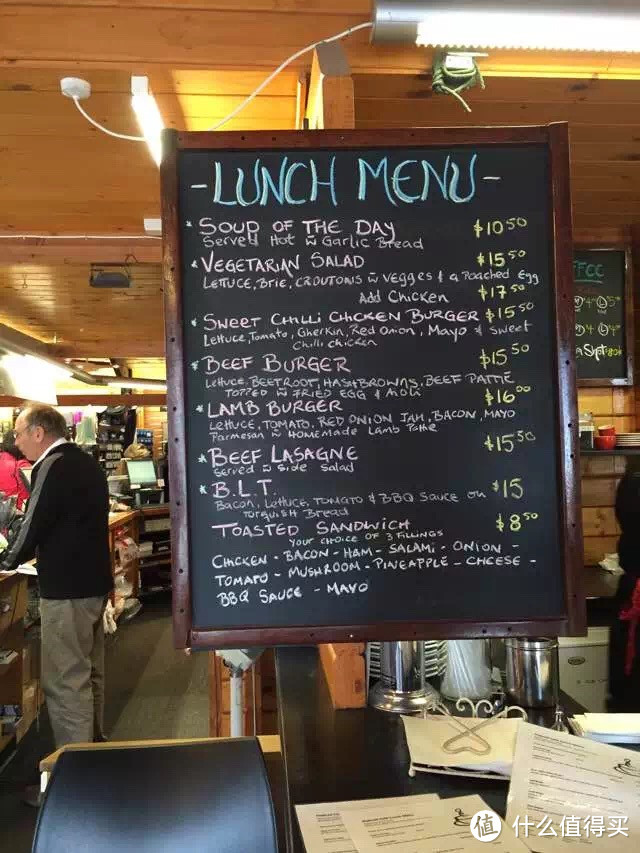 - LUNCH MENU -
* SOUP OF THE DAY $10.50
Served Hot w Garlic Bread
* VEGETARIAN SALAD $15.50
LETTUCE, BRIE, CROUTONS w veggies & a Poached Egg
Add Chicken $17.50
* SWEET CHILLI CHICKEN BURGER $15.50
Lettuce, Tomato, Gherkin, Red Onion, Mayo & Sweet
Chilli chicken
* BEEF BURGER $15.50
Lettuce, BEETROOT, HASHBROWNS, BEEF PATTIE
TOPPED w FRIED EGG &
* LAMB BURGER $16.00
LETTUCE, TOMATO, RED ONION JAM, BACON, MAYO
Parmesan w HOMEMADE Lamb Pattie
* BEEF LASAGNE $15.50
Served w Side Salad
* B.L.T. $15
Bacon, Lettuce, TOMATO & BBQ SAUCE on
Turguish Bread
TOASTED SANDWICH $8.50
YOUR CHOICE OF 3 FILLINGS
CHICKEN - BACON - HAM - SALAMI - ONION -
TOMATO - MUSHROOM - PINEAPPLE - CHEESE -
BBQ SAUCE - MAYO
值 什么值得买